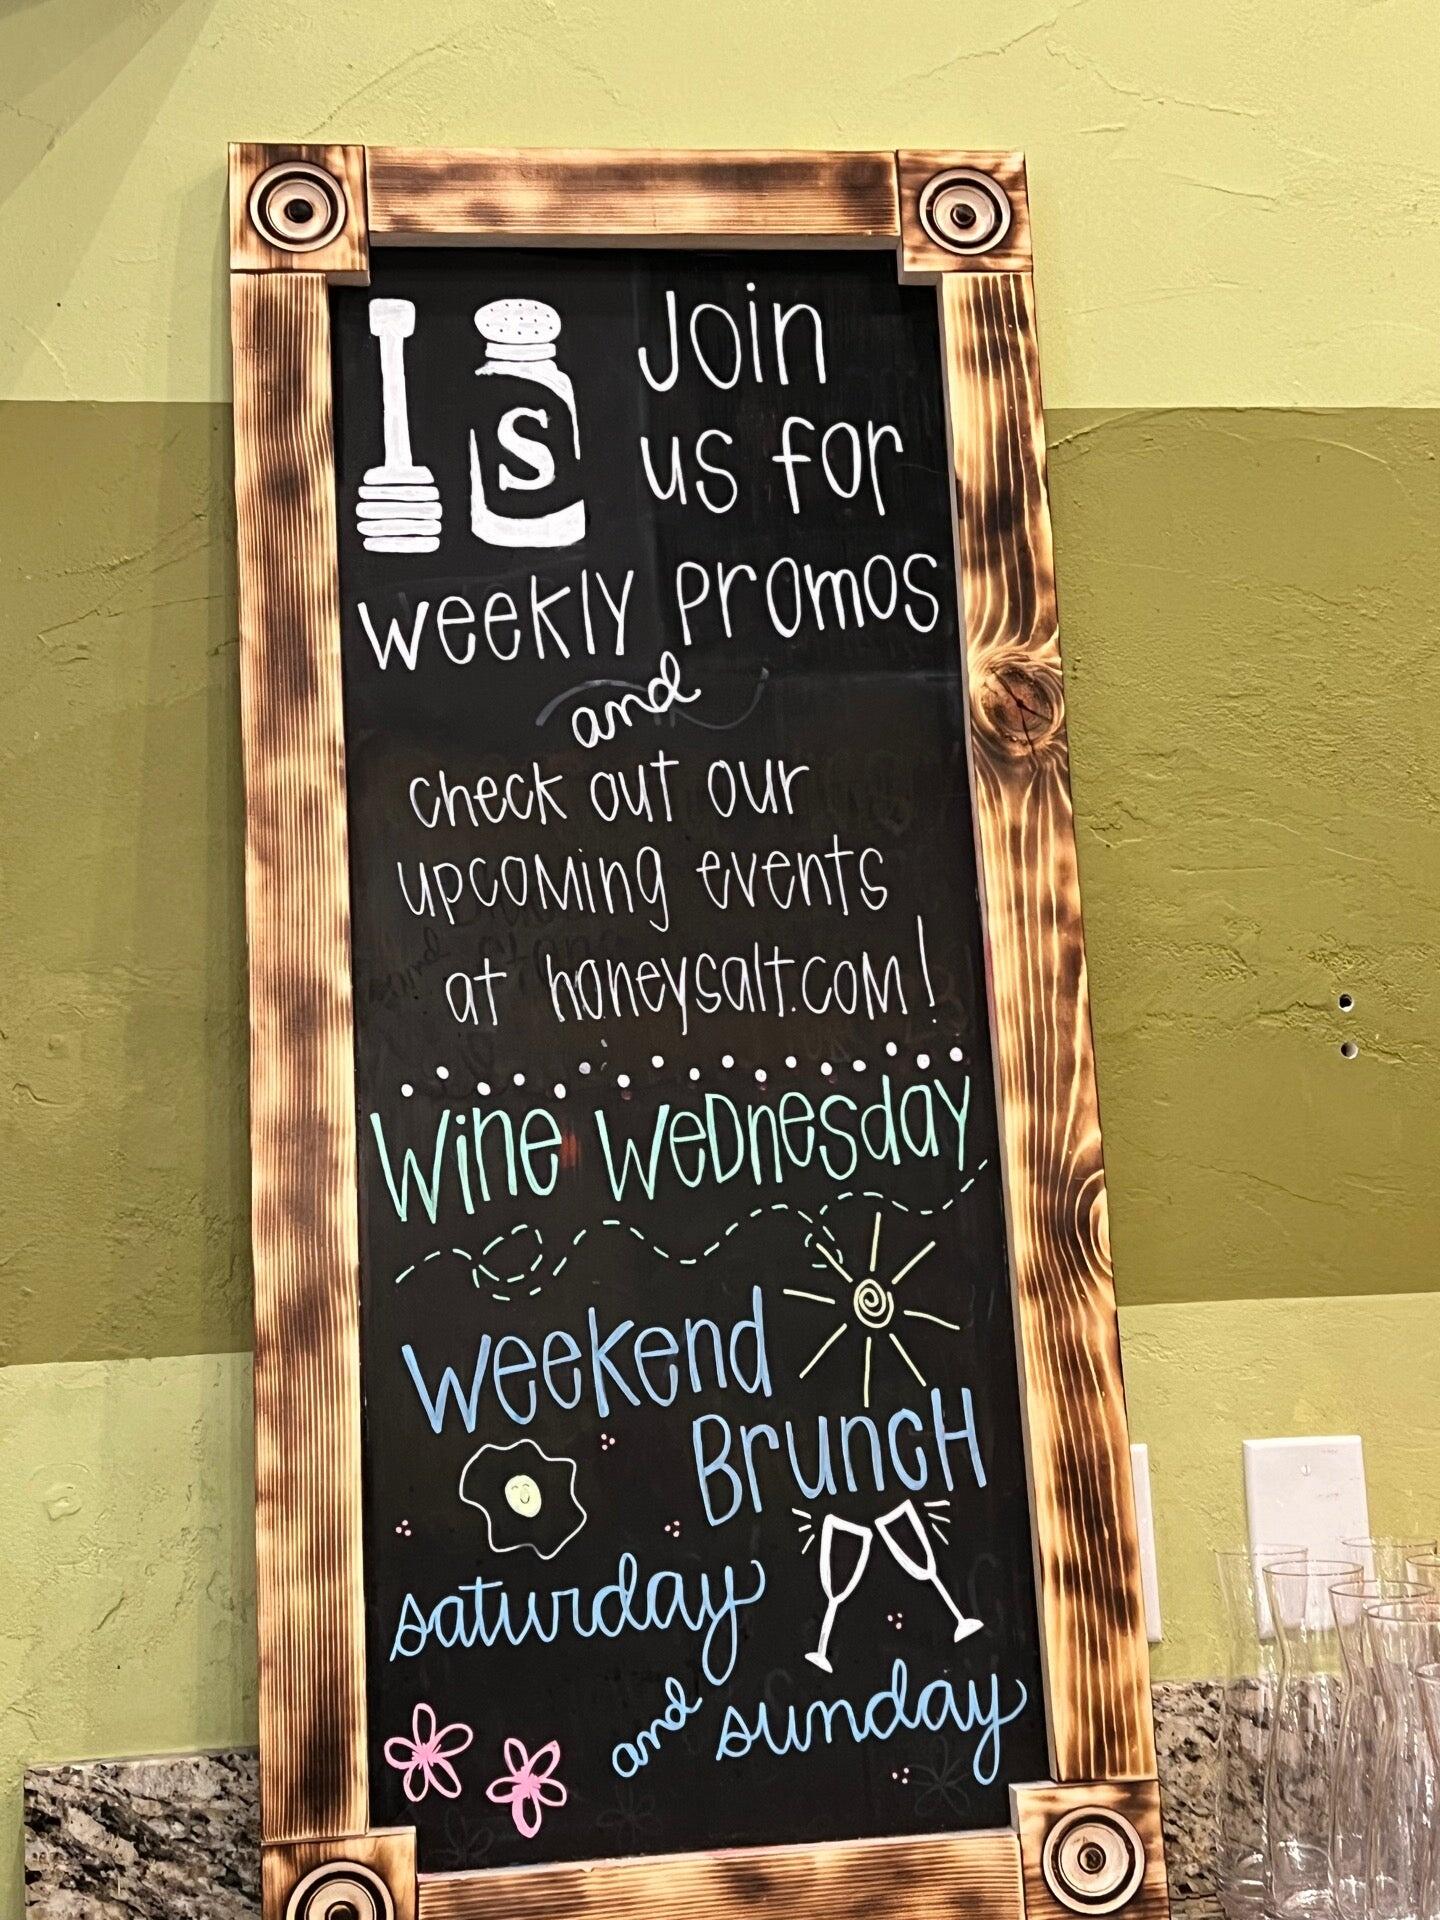 S
Join
us for
weekly promos
and
check out our
upcoming events
at honeysalt.com!
Wine Wednesday
Weekend
Brunch
saturday
and sunday